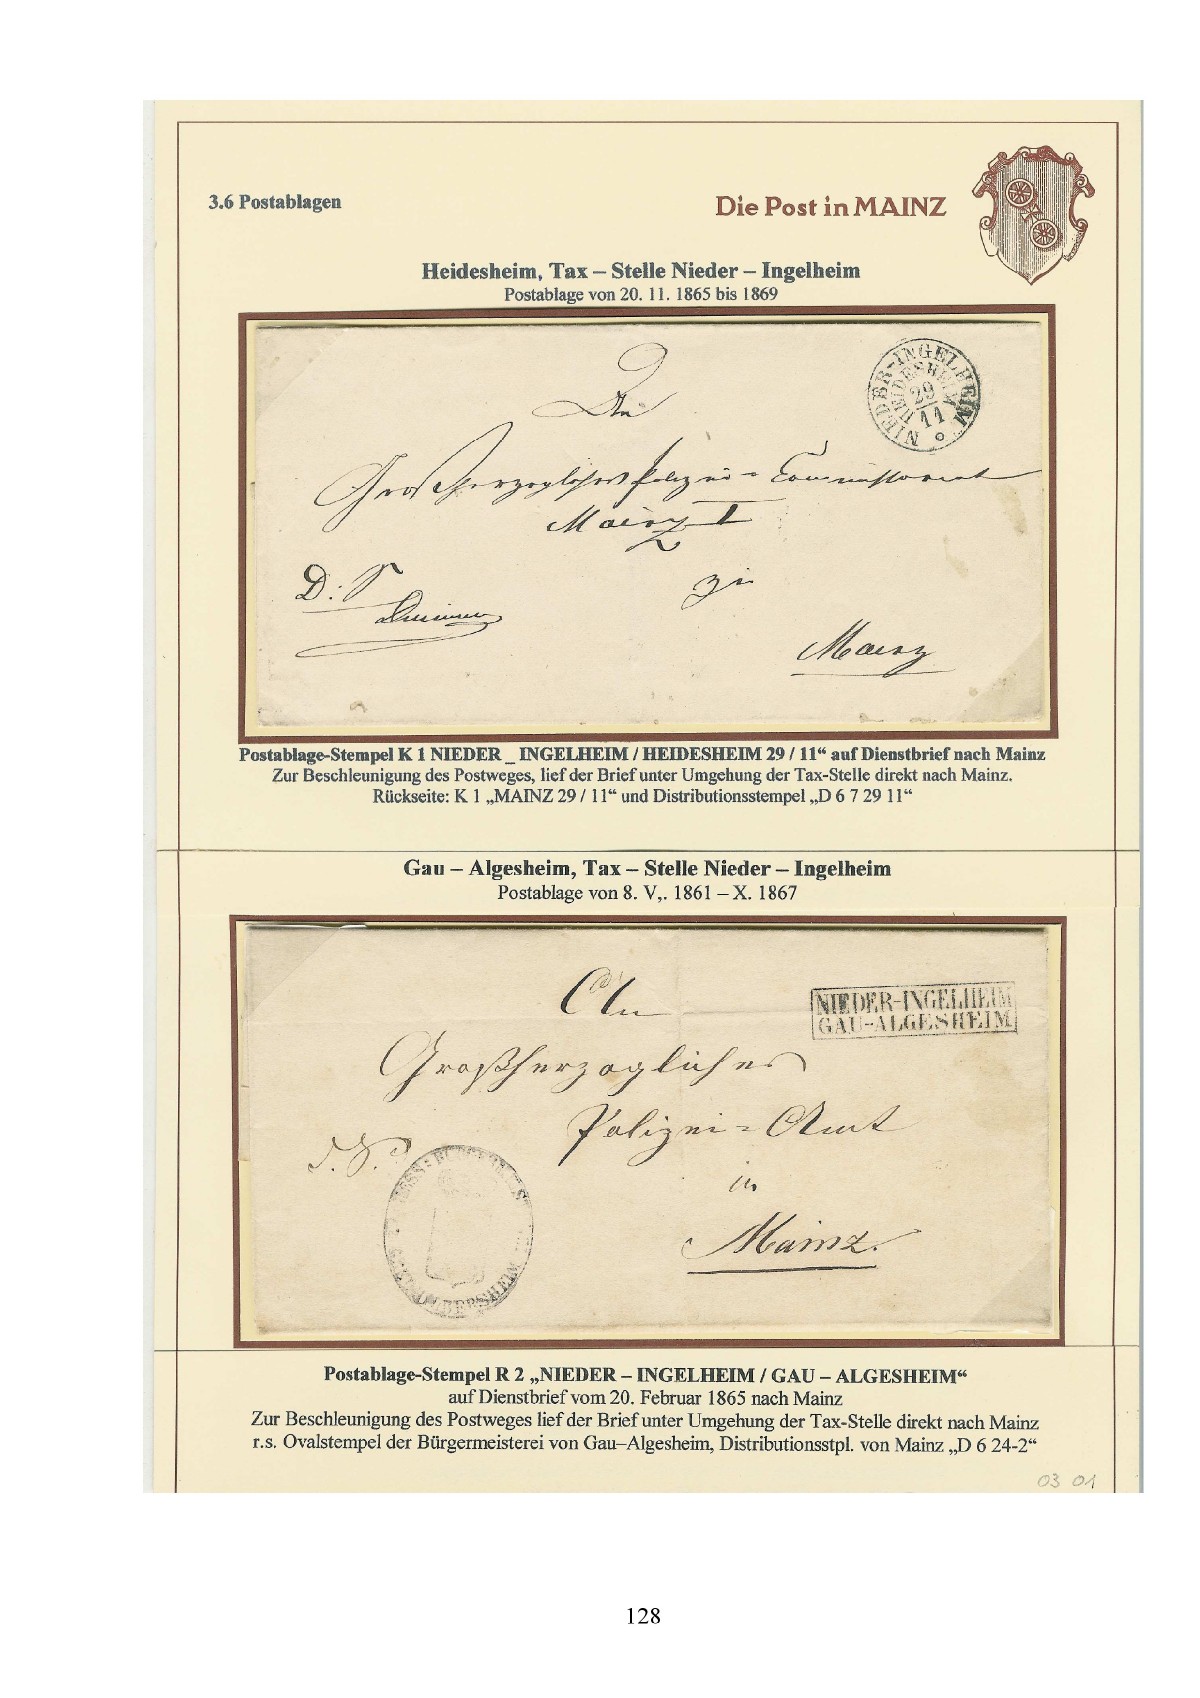 3.6 Postablagen
Die Post in MAINZ
Heidesheim, Tax – Stelle Nieder – Ingelheim
Postablage von 20. 11. 1865 bis 1869
NIEDER-INGELHEIM
HEIDESHEIM
29
11
An
Großherzogliches Polizei = Commissariat
Mainz I
zu
D: S
Mainz
Postablage-Stempel K 1 NIEDER _ INGELHEIM / HEIDESHEIM 29 / 11“ auf Dienstbrief nach Mainz
Zur Beschleunigung des Postweges, lief der Brief unter Umgehung der Tax-Stelle direkt nach Mainz.
Rückseite: K 1 „MAINZ 29 / 11“ und Distributionsstempel „D 6 7 29 11“
Gau – Algesheim, Tax – Stelle Nieder – Ingelheim
Postablage von 8. V,. 1861 – X. 1867
An
NIEDER-INGELHEIM
GAU-ALGESHEIM
Großherzogliches
Polizei = Amt
D. S.
in
Mainz.
Postablage-Stempel R 2 „NIEDER – INGELHEIM / GAU – ALGESHEIM“
auf Dienstbrief vom 20. Februar 1865 nach Mainz
Zur Beschleunigung des Postweges lief der Brief unter Umgehung der Tax-Stelle direkt nach Mainz
r.s. Ovalstempel der Bürgermeisterei von Gau–Algesheim, Distributionsstpl. von Mainz „D 6 24-2“
03 01
128